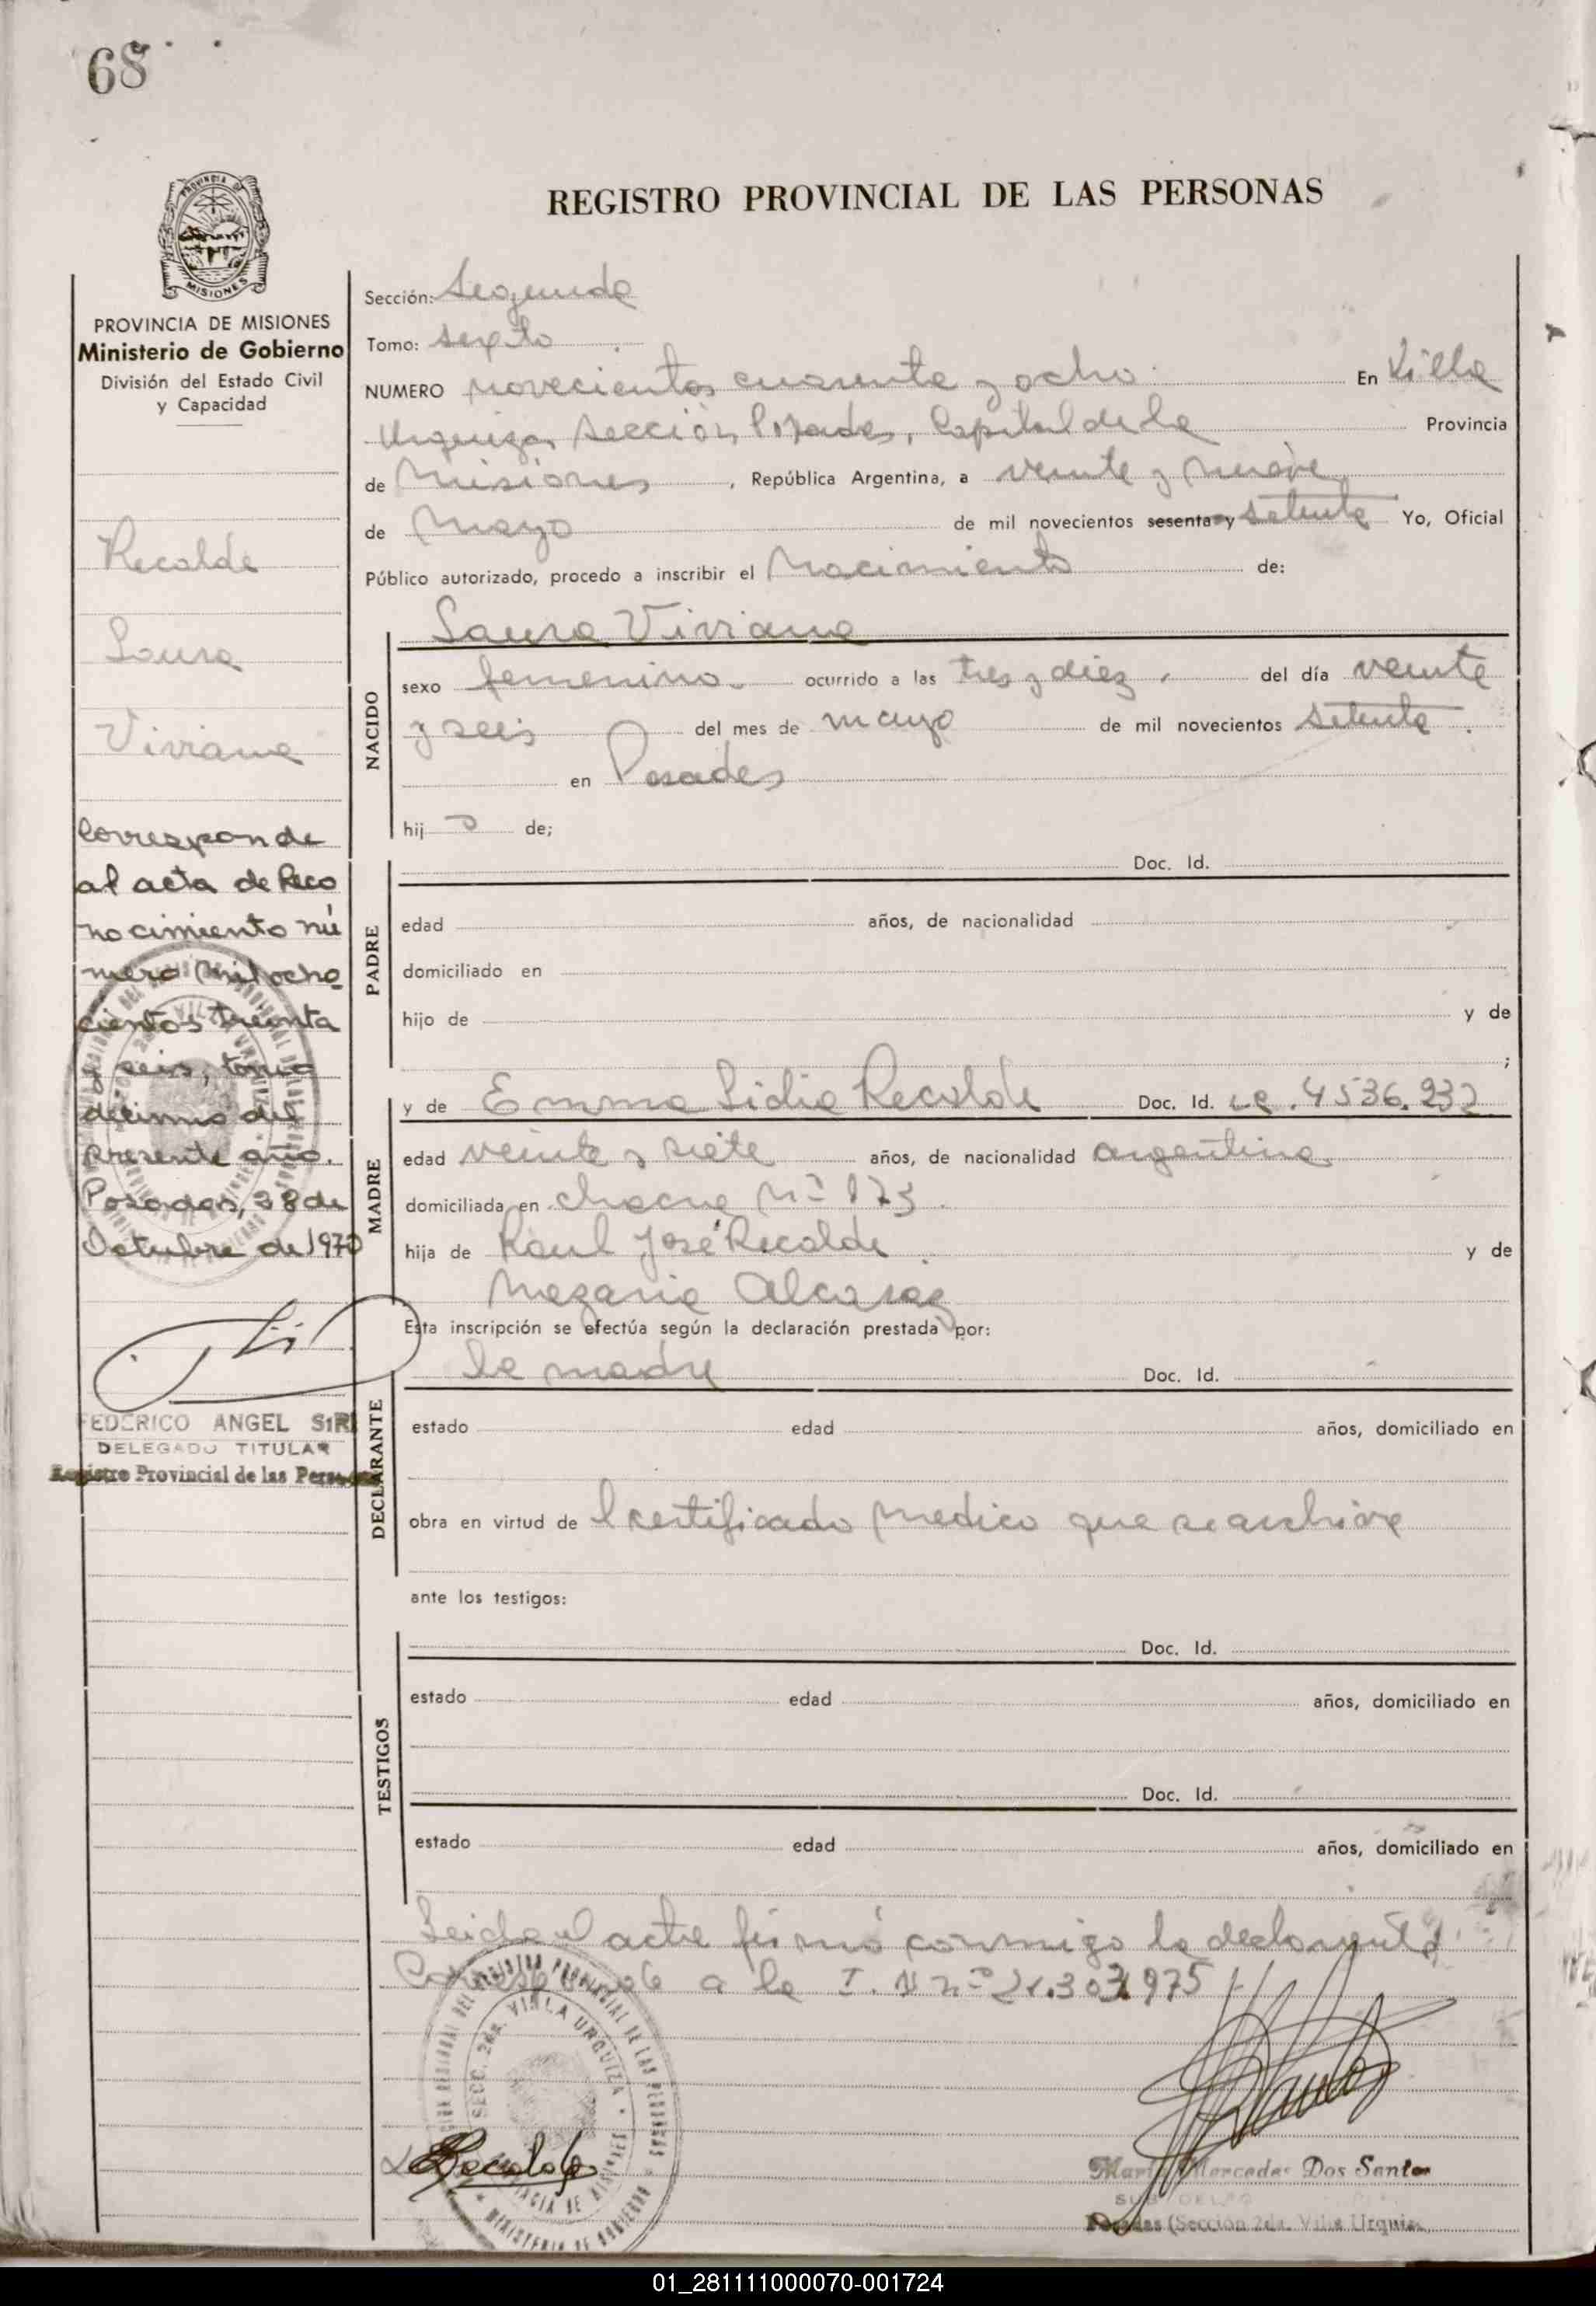 68
REGISTRO PROVINCIAL DE LAS PERSONAS
PROVINCIA DE MISIONES
Ministerio de Gobierno
División del Estado Civil
y Capacidad
Recalde
Laura
Viviana
Corresponde
al acta de Reco
nocimiento nú
mero mil ocho
cientos treinta
y seis, tomo
décimo del
presente año.
Posadas, 28 de
Octubre de 1970
FEDERICO ANGEL SIRI
DELEGADO TITULAR
Registro Provincial de las Personas
Sección: Segunda
Tomo: sexto
NUMERO novecientos cuarenta y ocho En Villa
Urquiza, Sección Posadas, Capital de la Provincia
de Misiones, República Argentina, a veinte y nueve
de Mayo de mil novecientos sesenta y setenta Yo, Oficial
Público autorizado, procedo a inscribir el Nacimiento de:
NACIDO
Laura Viviana
sexo femenino ocurrido a las tres y diez del día veinte
y seis del mes de mayo de mil novecientos setenta
en Posadas
hij a de;
PADRE
Doc. Id.
edad años, de nacionalidad
domiciliado en
hijo de y de
;
MADRE
y de Emma Lidia Recalde Doc. Id. L.C. 4536.932
edad veinte y siete años, de nacionalidad argentina
domiciliada en chacra Nº 173
hija de Raul José Recalde y de
Nazaria Alcaraz
Esta inscripción se efectúa según la declaración prestada por:
DECLARANTE
la madre Doc. Id.
estado edad años, domiciliado en
obra en virtud de l certificado medico que se archiva
ante los testigos:
TESTIGOS
Doc. Id.
estado edad años, domiciliado en
Doc. Id.
estado edad años, domiciliado en
Leida el acta firmó conmigo la declarante
Corresponde a la I. Nº 21.303.975
SECC. 2da. VILLA URQUIZA
Recalde
Maria Mercedes Dos Santos
Posadas (Sección 2da. Villa Urquiza
01_281111000070-001724